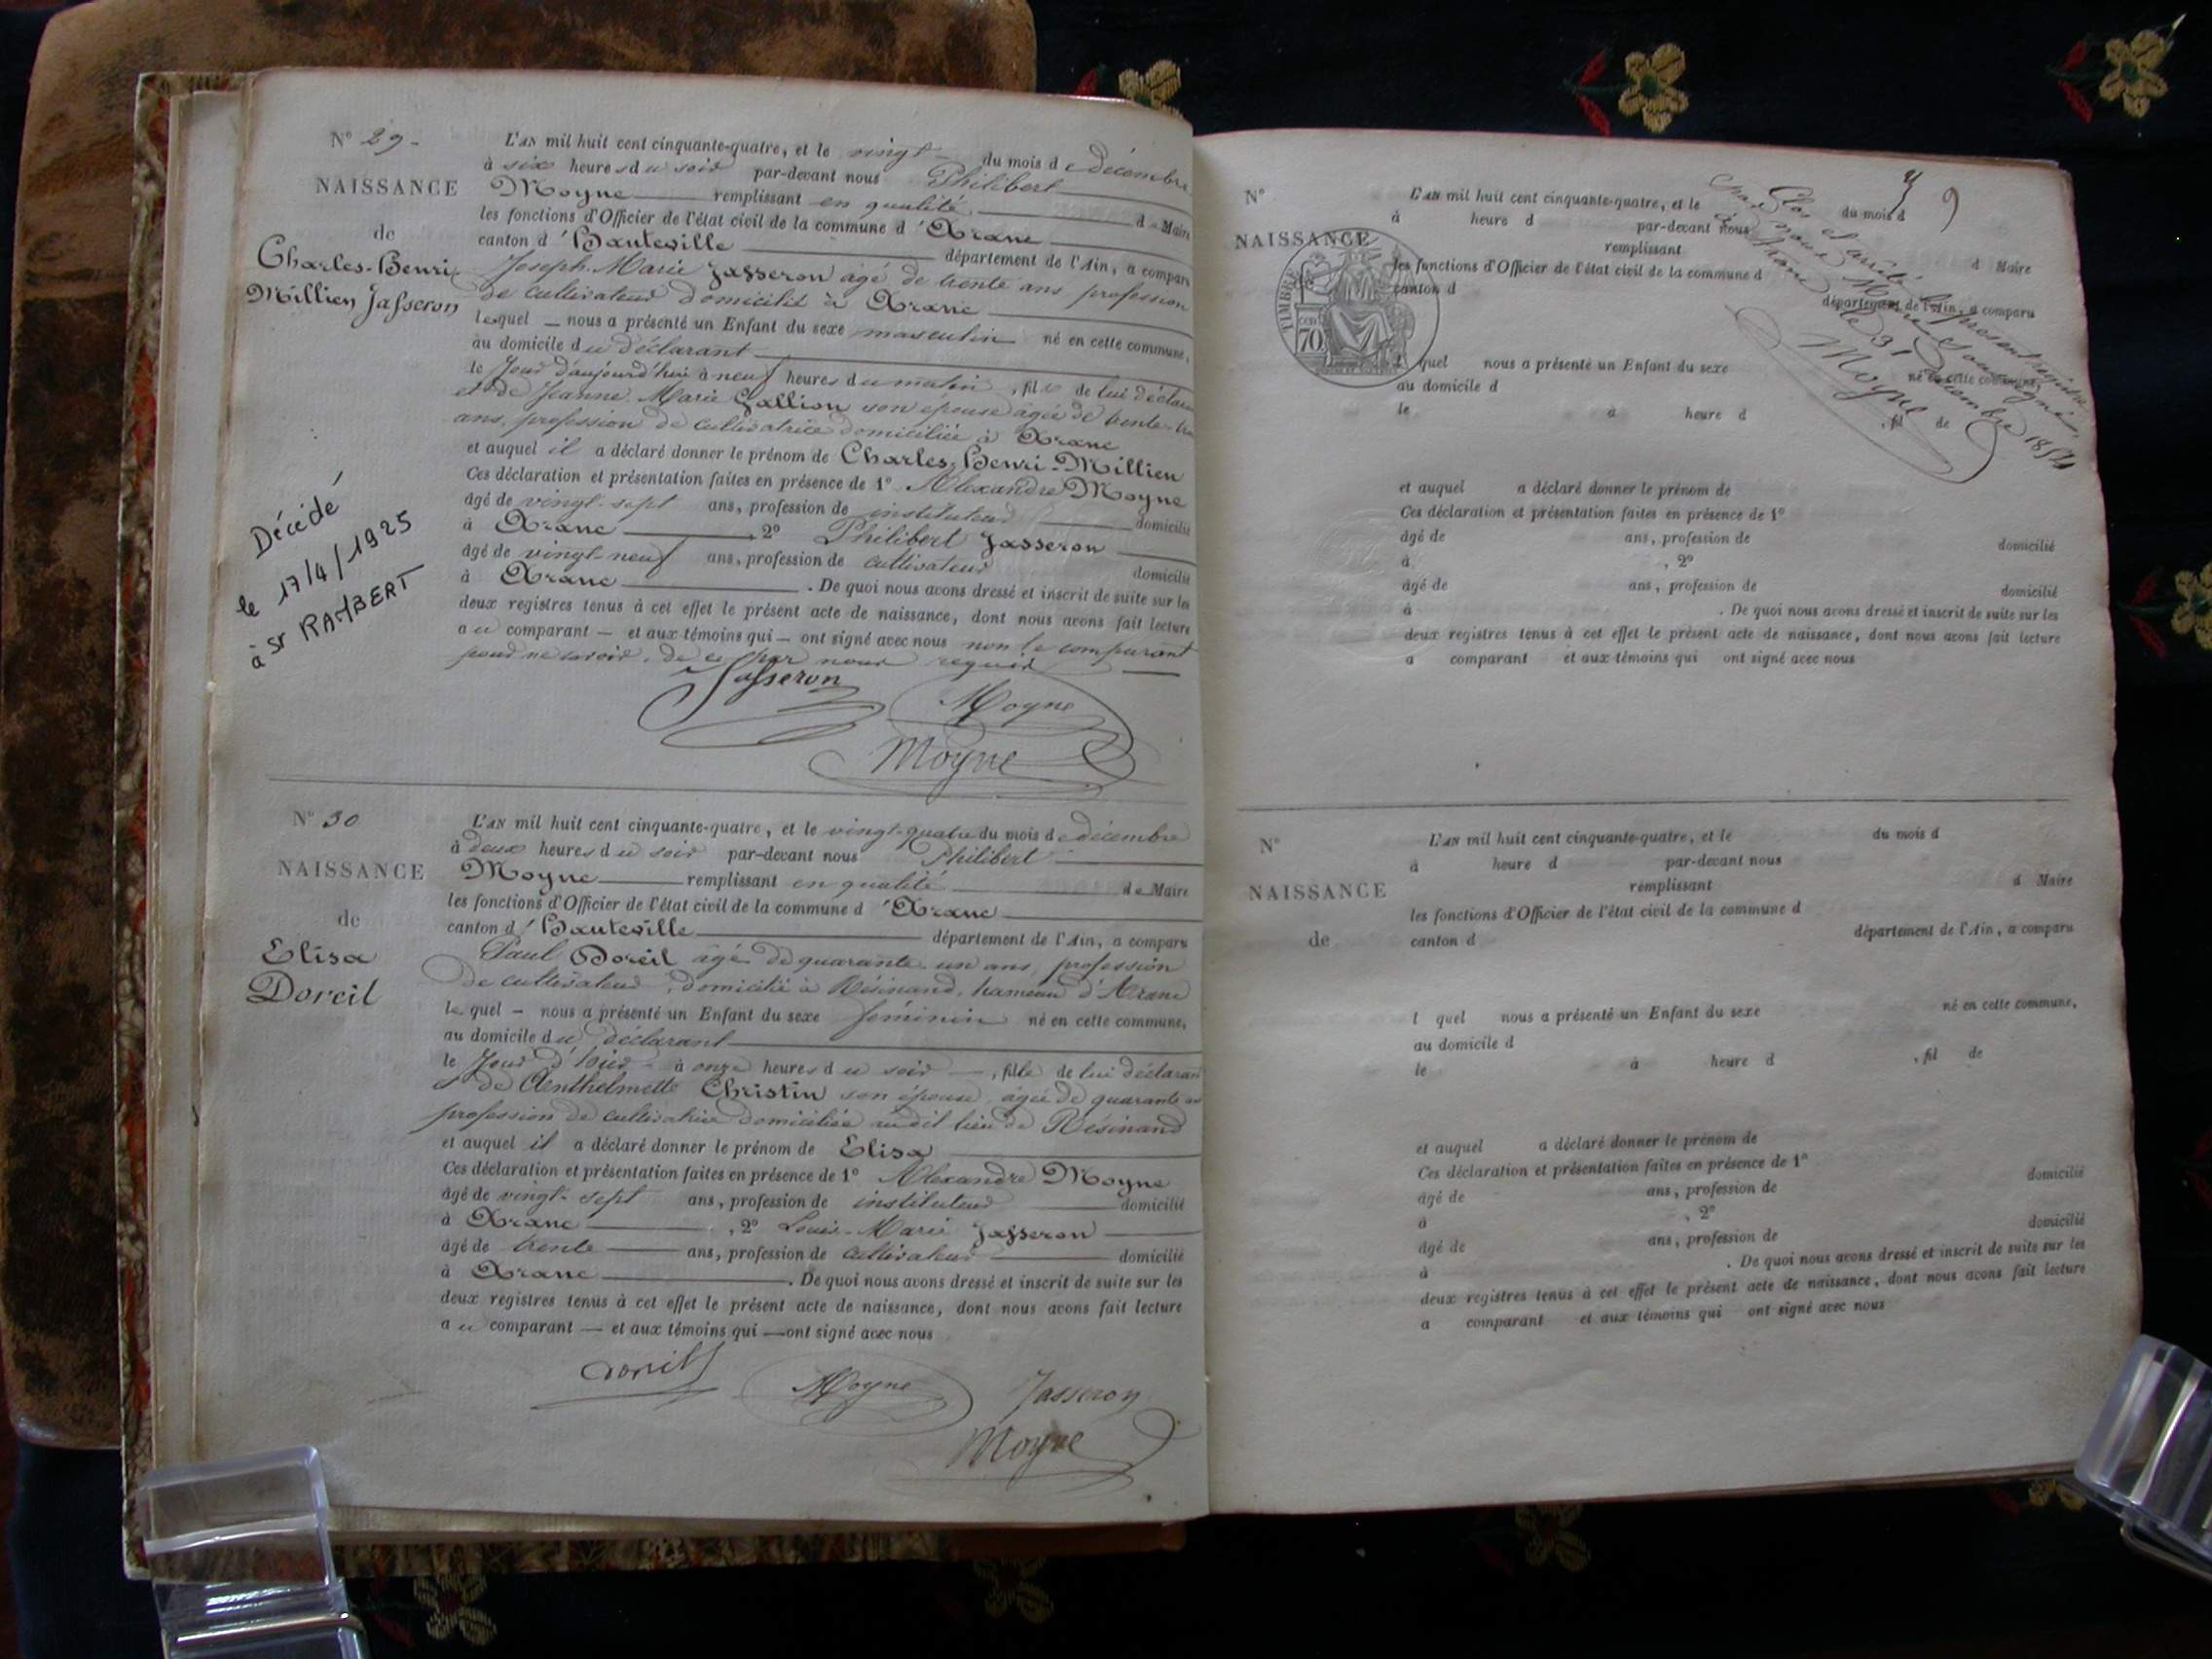 N° 29.
NAISSANCE
de
Charles-Henri
Millien Jasseron
Décédé
le 17/4/1925
à St RAMBERT
L'AN mil huit cent cinquante-quatre, et le vingt du mois de décembre
à six heures du soir par-devant nous Philibert
Moyne remplissant en qualité de Maire
les fonctions d'Officier de l'état civil de la commune d'Arane
canton d'Hauteville département de l'Ain, a comparu
Joseph-Marie Jasseron âgé de trente ans profession
de cultivateur domicilié à Arane
lequel nous a présenté un Enfant du sexe masculin né en cette commune,
au domicile du déclarant
le Jour d'aujourd'hui à neuf heures du matin, fils de lui déclarant
et de Jeanne Marie Gallion son épouse âgée de trente-
ans, profession de cultivatrice domiciliée à Arane
et auquel il a déclaré donner le prénom de Charles-Henri-Millien
Ces déclaration et présentation faites en présence de 1° Alexandre Moyne
âgé de vingt-sept ans, profession de instituteur domicilié
à Arane, 2° Philibert Jasseron
âgé de vingt-neuf ans, profession de cultivateur domicilié
à Arane. De quoi nous avons dressé et inscrit de suite sur les
deux registres tenus à cet effet le présent acte de naissance, dont nous avons fait lecture
au comparant — et aux témoins qui — ont signé avec nous non le comparant
pour ne savoir, de ce par nous requis
Jasseron
Moyne
Moyne
N° 30
NAISSANCE
de
Elisa
Doreil
L'AN mil huit cent cinquante-quatre, et le vingt-quatre du mois de décembre
à deux heures du soir par-devant nous Philibert
Moyne remplissant en qualité de Maire
les fonctions d'Officier de l'état civil de la commune d'Arane
canton d'Hauteville département de l'Ain, a comparu
Paul Doreil âgé de quarante-un ans, profession
de cultivateur, domicilié à Résinand, hameau d'Arane
lequel – nous a présenté un Enfant du sexe féminin né en cette commune,
au domicile du déclarant
le Jour d'hier à onze heures du soir —, fille de lui déclarant
et de Anthelmette Christin son épouse, âgée de quarante ans
profession de cultivatrice domiciliée audit lieu de Résinand
et auquel il a déclaré donner le prénom de Elisa
Ces déclaration et présentation faites en présence de 1° Alexandre Moyne
âgé de vingt-sept ans, profession de instituteur domicilié
à Arane, 2° Louis-Marie Jasseron
âgé de trente ans, profession de cultivateur domicilié
à Arane. De quoi nous avons dressé et inscrit de suite sur les
deux registres tenus à cet effet le présent acte de naissance, dont nous avons fait lecture
au comparant — et aux témoins qui — ont signé avec nous
Doreil
Moyne
Jasseron
Moyne
9
N°
NAISSANCE
TIMBRE
70
L'AN mil huit cent cinquante-quatre, et le du mois d
à heure d par-devant nous
remplissant d Maire
les fonctions d'Officier de l'état civil de la commune d
canton d département de l'Ain, a comparu
l quel nous a présenté un Enfant du sexe né en cette commune,
au domicile d
le à heure d , fil de
Clos et arrêté le présent registre
par nous Maire soussigné,
à Arane le 31 Décembre 1854
Moyne
et auquel a déclaré donner le prénom de
Ces déclaration et présentation faites en présence de 1°
âgé de ans, profession de domicilié
à , 2°
âgé de ans, profession de domicilié
à . De quoi nous avons dressé et inscrit de suite sur les
deux registres tenus à cet effet le présent acte de naissance, dont nous avons fait lecture
a comparant et aux témoins qui ont signé avec nous
N°
NAISSANCE
de
L'AN mil huit cent cinquante-quatre, et le du mois d
à heure d par-devant nous
remplissant d Maire
les fonctions d'Officier de l'état civil de la commune d
canton d département de l'Ain, a comparu
l quel nous a présenté un Enfant du sexe né en cette commune,
au domicile d
le à heure d , fil de
et auquel a déclaré donner le prénom de
Ces déclaration et présentation faites en présence de 1°
âgé de ans, profession de domicilié
à , 2°
âgé de ans, profession de domicilié
à . De quoi nous avons dressé et inscrit de suite sur les
deux registres tenus à cet effet le présent acte de naissance, dont nous avons fait lecture
a comparant et aux témoins qui ont signé avec nous